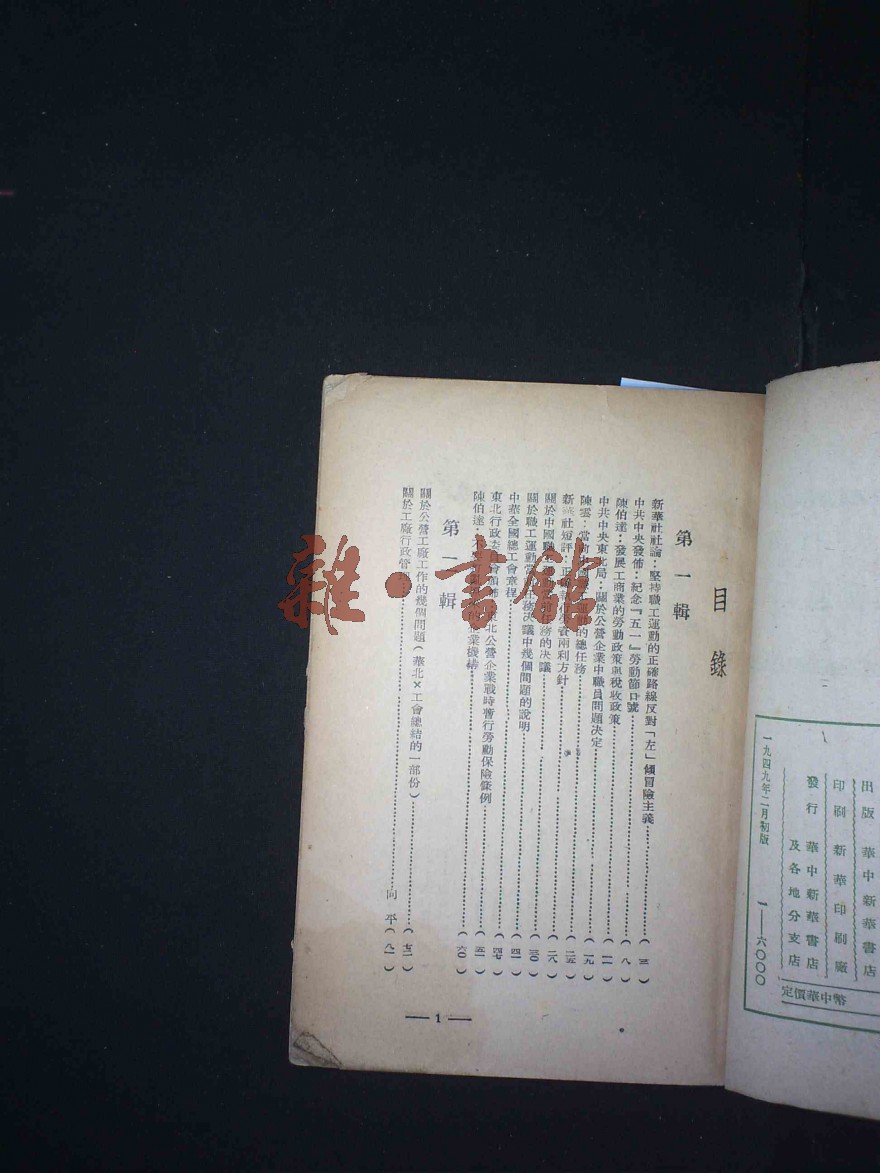 目錄
第一輯
新華社社論：堅持職工運動的正確路線反對「左」傾冒險主義（三）
中共中央發佈：紀念『五一』勞動節口號（八）
陳伯達：發展工商業的勞動政策與稅收政策（一一）
中共中央東北局：關於公營企業中職員問題決定（一九）
陳雲：當前 的總任務（二五）
新華社短評： 兩利方針（二八）
關於中國職 務的决議（三〇）
關於職工運動當 任務决議中幾個問題的說明（四一）
中華全國總工會章程（四七）
東北行政委員會頒佈：東北公營企業戰時暫行勞動保險條例（五一）
陳伯達：不 企業機構（六〇）
第 輯
關於公營工廠工作的幾個問題（華北×工會總結的一部份）（七二）
關於工廠行政管 向平（八一）
— 1 —
出版 華中新華書店
印刷 新華印刷廠
發行 華中新華書店
及各地分支店
一九四九年二月初版 一—六〇〇〇
定價華中幣
雜·書館